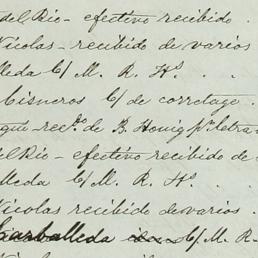 del Rio - efectivo recibido .
Nicolas - recibido de varios
lleda C/ M. R. Hs. . .
Cisneros C/ de corretage .
que - recdo de B. Honig pr letra
del Rio - efectivo recibido de
lleda C/ M. R. Hs. .
Nicolas recibido de varios .
Carballeda C/ M. R.